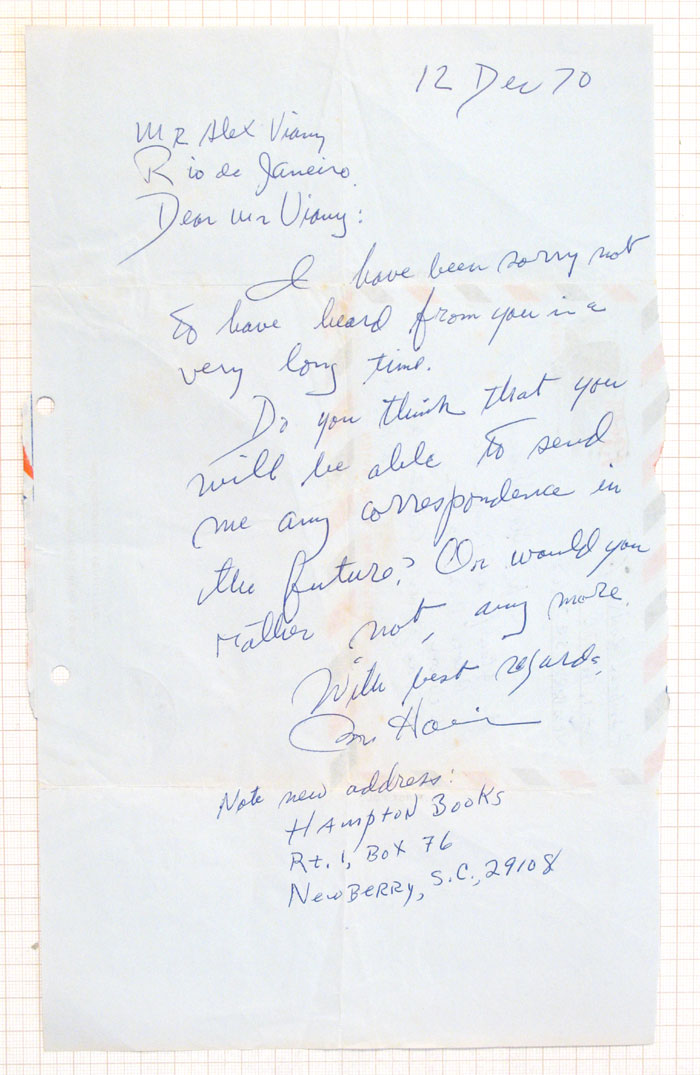 12 Dec 70
Mr Alex Viany
Rio de Janeiro
Dear Mr Viany:
I have been sorry not
to have heard from you in a
very long time.
Do you think that you
will be able to send
me any correspondence in
the future? Or would you
rather not, any more.
With best regards,
Note new address:
HAMPTON BOOKS
Rt. 1, BOX 76
NEWBERRY, S.C., 29108